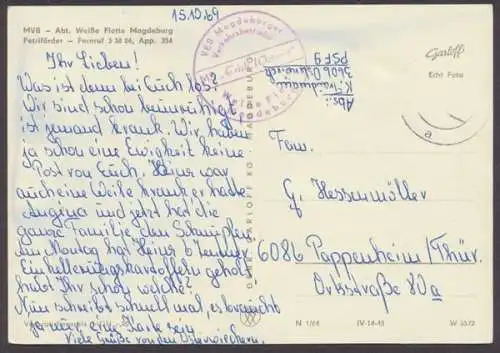 15.10.69
MVB – Abt. Weiße Flotte Magdeburg
Petriförder – Fernruf 3 58 06, App. 354
Ihr Lieben!
Was ist denn bei Euch los?
Wir sind schon beunruhigt
ist jemand krank. Wir haben
ja schon eine Ewigkeit keine
Post von Euch. Heinz war
auch eine Weile krank er hatte
Angina und jetzt hat die
ganze Familie den Schnupfen
am Montag hat Heinz 6 Zentner
Einkellerungskartoffeln geholt,
habt Ihr schon welche?
Nun schreibt schnell mal, es braucht
ja nur eine Karte sein
Viele Grüße von den
VEB Magdeburger
Verkehrsbetriebe
Weiße Flotte
Magdeburg
MAGDEBURG
Garloff
Echt Foto
Abs.:
K.
3600
PSF 9
a
Fam.
G. Hessenmüller
6086 Pappenheim/Thür.
Orksstraße 80a
N 1/64 IV-14-45 W 5572